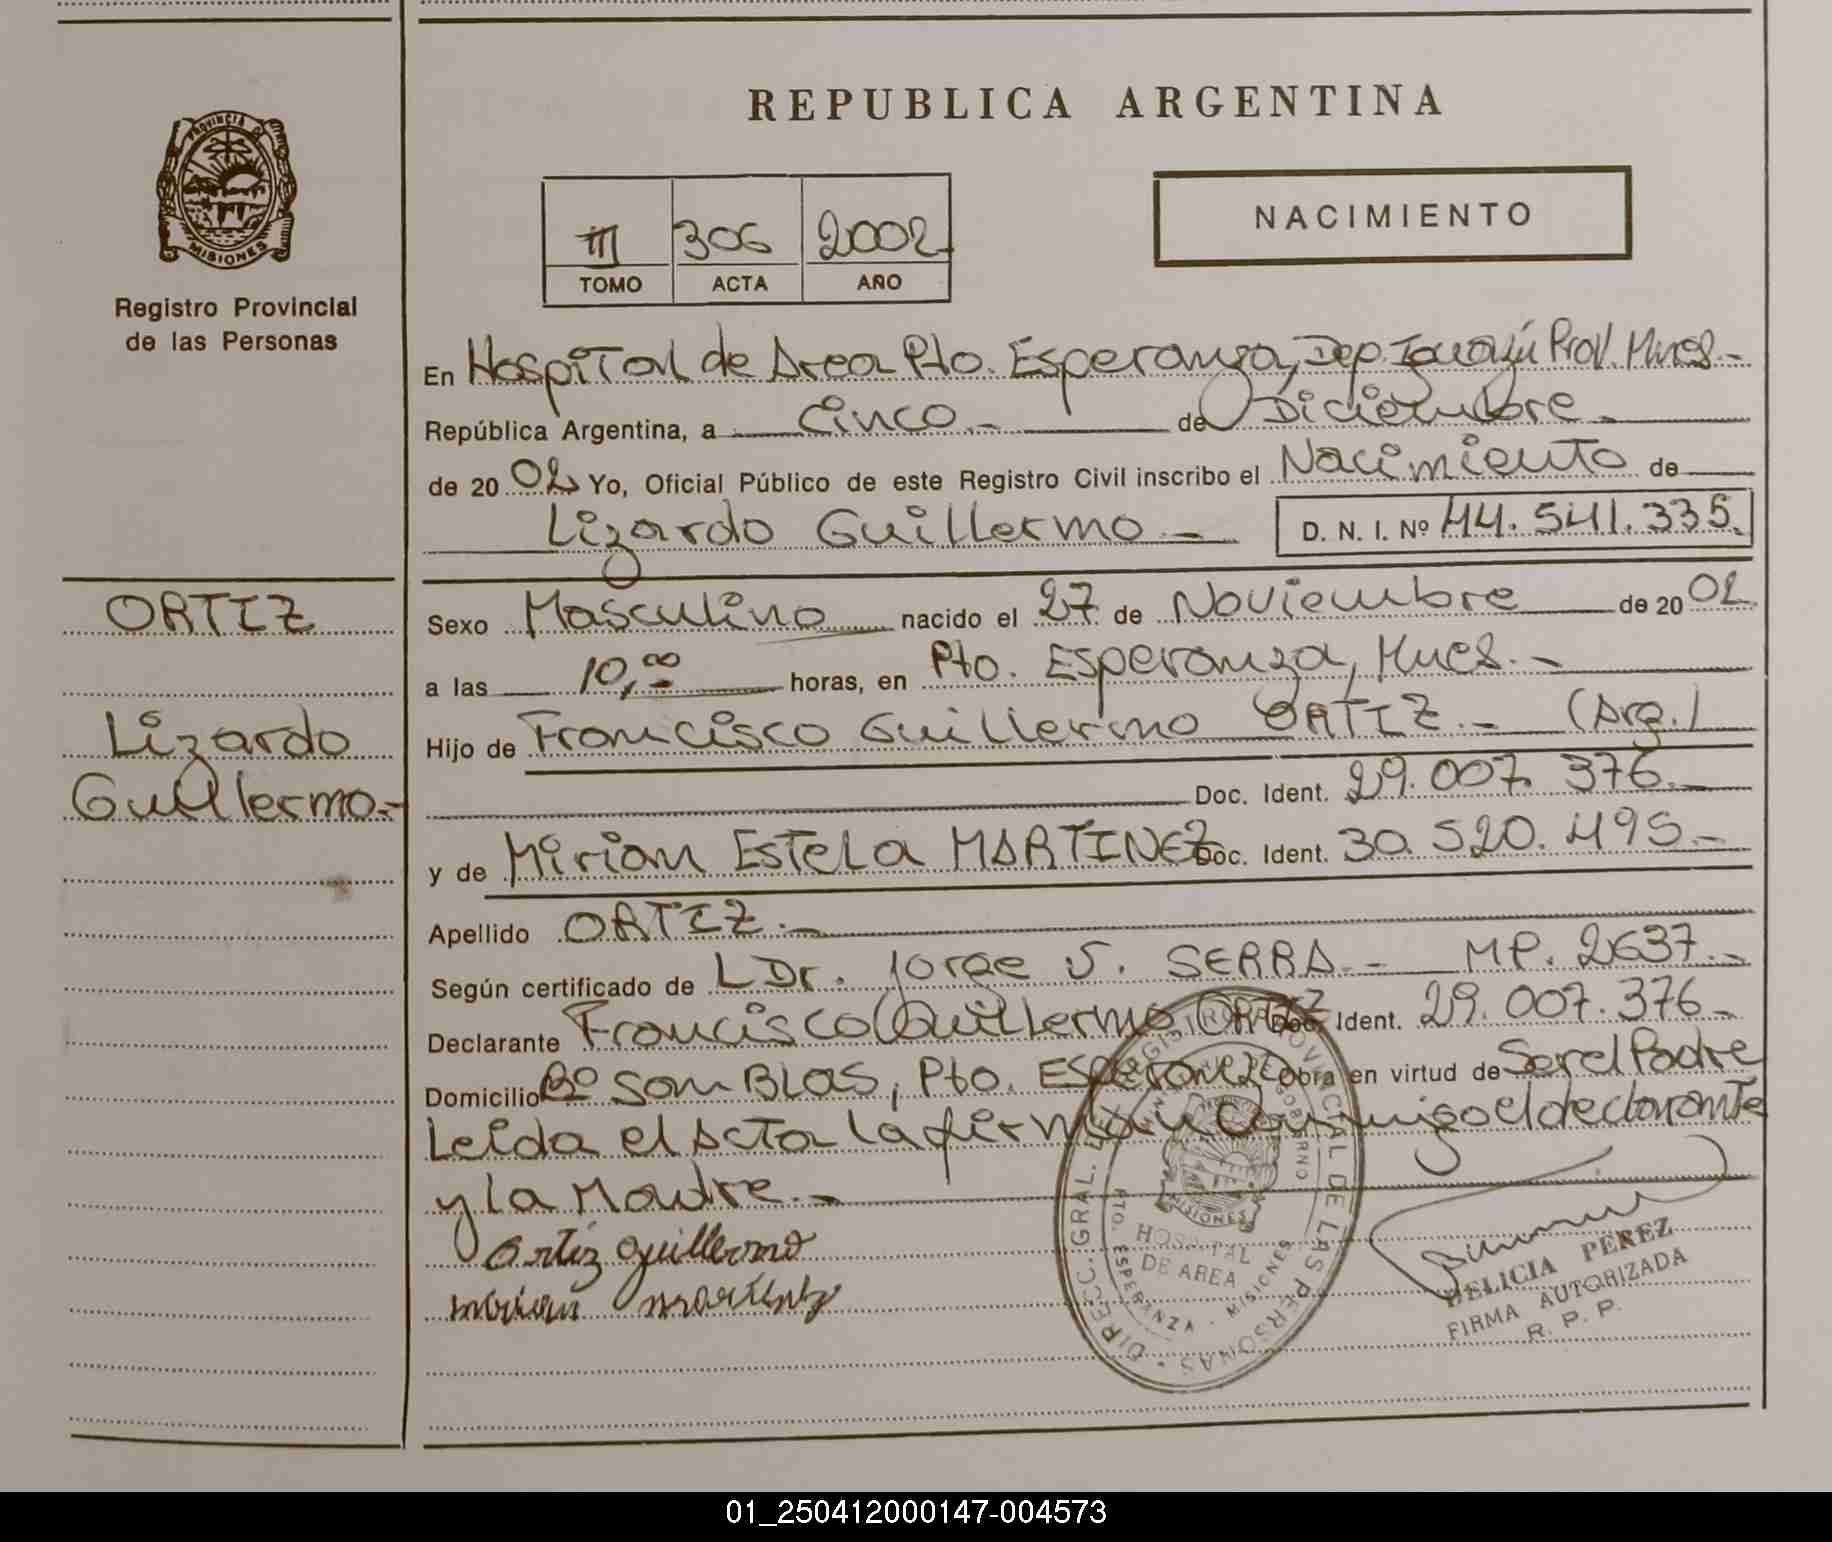 REPUBLICA ARGENTINA
PROVINCIA D
MISIONES
Registro Provincial
de las Personas
III 306 2002
TOMO ACTA AÑO
NACIMIENTO
En Hospital de Area Pto. Esperanza, Dep. Iguazú Prov. Mnes.-
República Argentina, a Cinco.- de Diciembre.-
de 2002 Yo, Oficial Público de este Registro Civil inscribo el Nacimiento de
Lizardo Guillermo.- D. N. I. Nº 44.541.335.
ORTIZ
Lizardo
Guillermo.-
Sexo Masculino nacido el 27 de Noviembre de 2002
a las 10,00 horas, en Pto. Esperanza, Mnes.-
Hijo de Francisco Guillermo ORTIZ.- (Arg.)
Doc. Ident. 29.007.376.-
y de Mirian Estela MARTINEZ Doc. Ident. 30.520.495.-
Apellido ORTIZ.-
Según certificado de LDr. Jorge S. SERRA.- MP. 2637.-
Declarante Francisco Guillermo ORTIZ Doc. Ident. 29.007.376.-
Domicilio Bº San Blas, Pto. Esperanza Obra en virtud de Ser el Padre
Leida el Acta la firman Conmigo el declarante
y la Madre.-
Ortiz Guillermo
mirian martinez
DIRECC. GRAL. DEL REGISTRO PROVINCIAL DE LAS PERSONAS
GOBIERNO
MISIONES
HOSPITAL
DE AREA
PTO. ESPERANZA - MISIONES
DELICIA PEREZ
FIRMA AUTORIZADA
R. P. P.
01_250412000147-004573